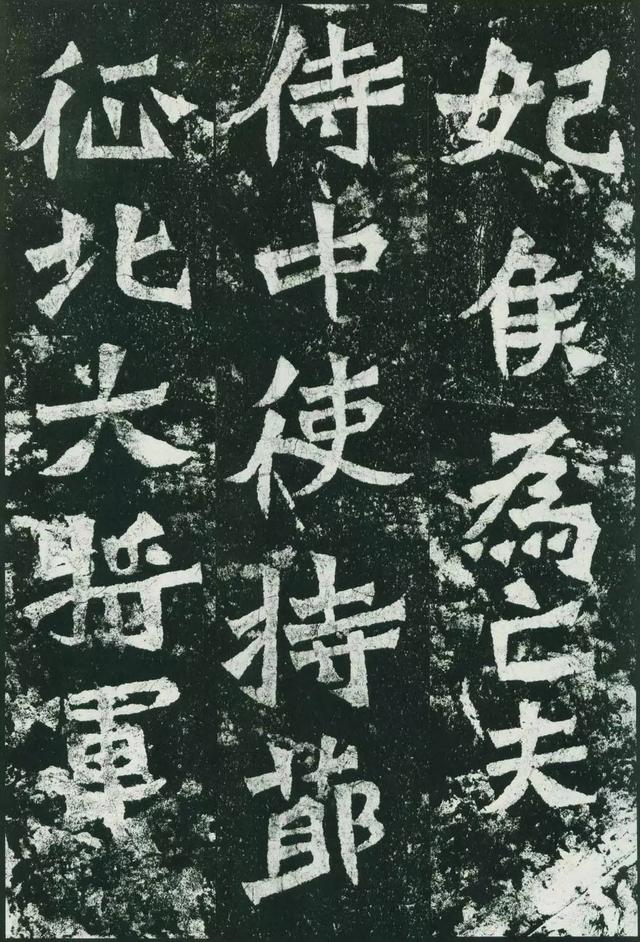 妃侯為亡夫
侍中使持節
征北大將軍